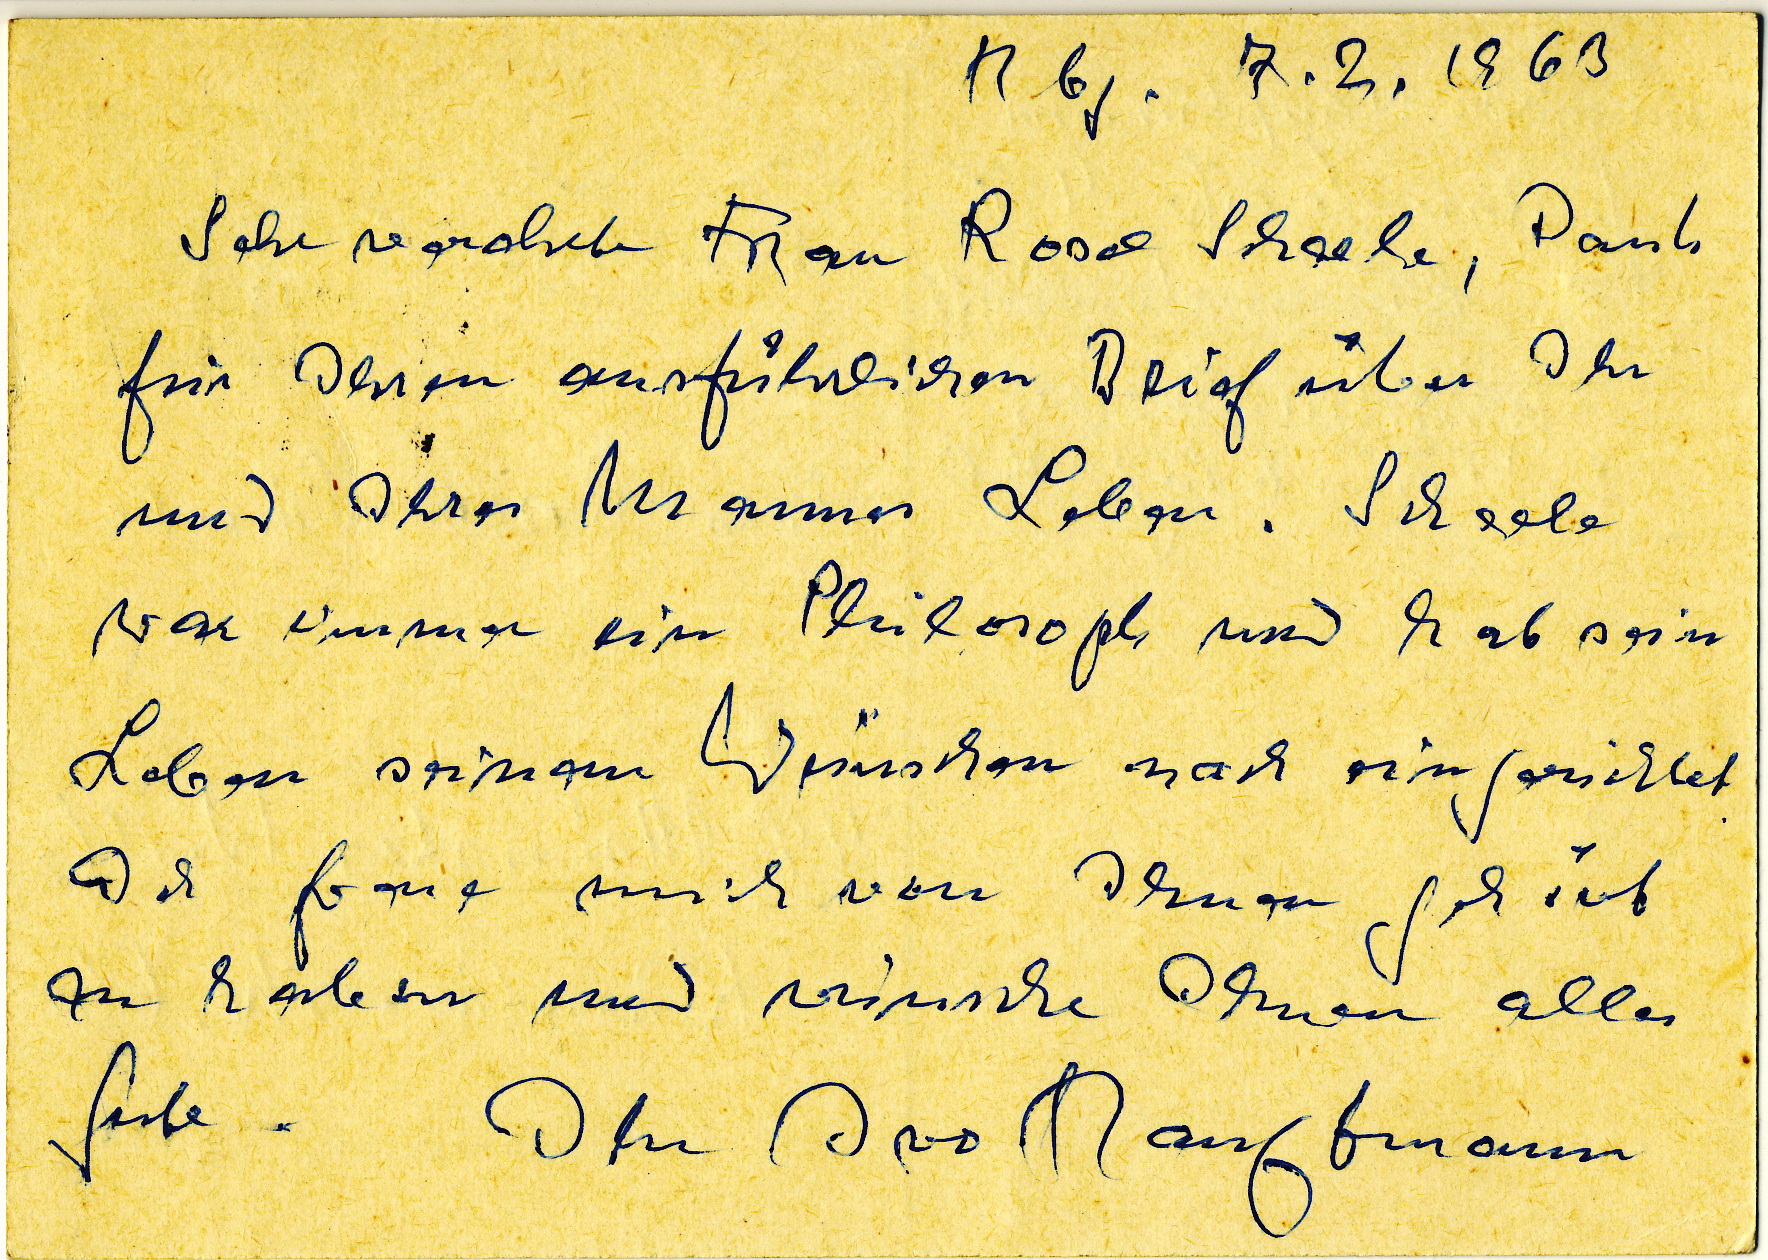 Hbg. 7.2.1963
Sehr verehrte Frau Rose Scheele, Dank
für Ihren ausführlichen Brief über Ihr
und Ihres Mannes Leben. Scheele
war immer ein Philosoph und hat sein
Leben seinen Wünschen nach eingerichtet.
Ich freue mich von Ihnen gehört
zu haben und wünsche Ihnen alles
Gute. Ihr Ivo Hauptmann